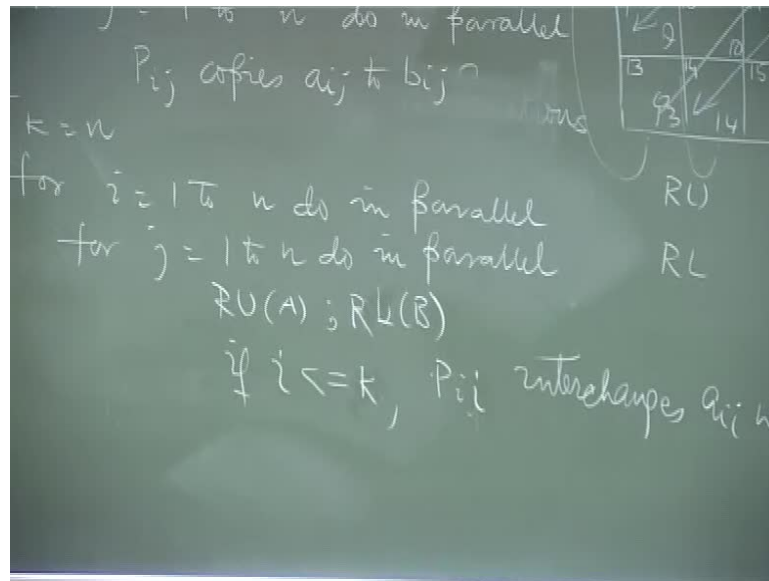 j = 1 to n do in parallel
Pij copies aij to bij
k = n
for i = 1 to n do in parallel
for j = 1 to n do in parallel
RU(A) ; RL(B)
if i <= k, Pii interchanges aii
13 14 15
13 14
RU
RL